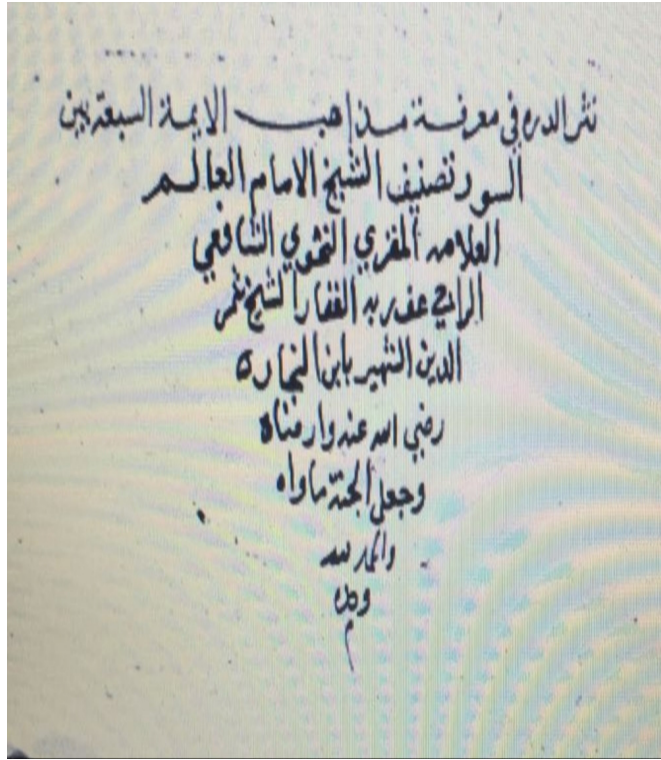 نثر الدر في معرفة مذاهب الايمة السبعة بين
السور تصنيف الشيخ الامام العالم
العلامه المقري النحوي الشافعي
الراجي عفو ربه الغفار الشيخ شمس
الدين الشهير بابن النجاره
رضي الله عنه وارضاه
وجعل الجنة ماواه
والحمد لله
وحده